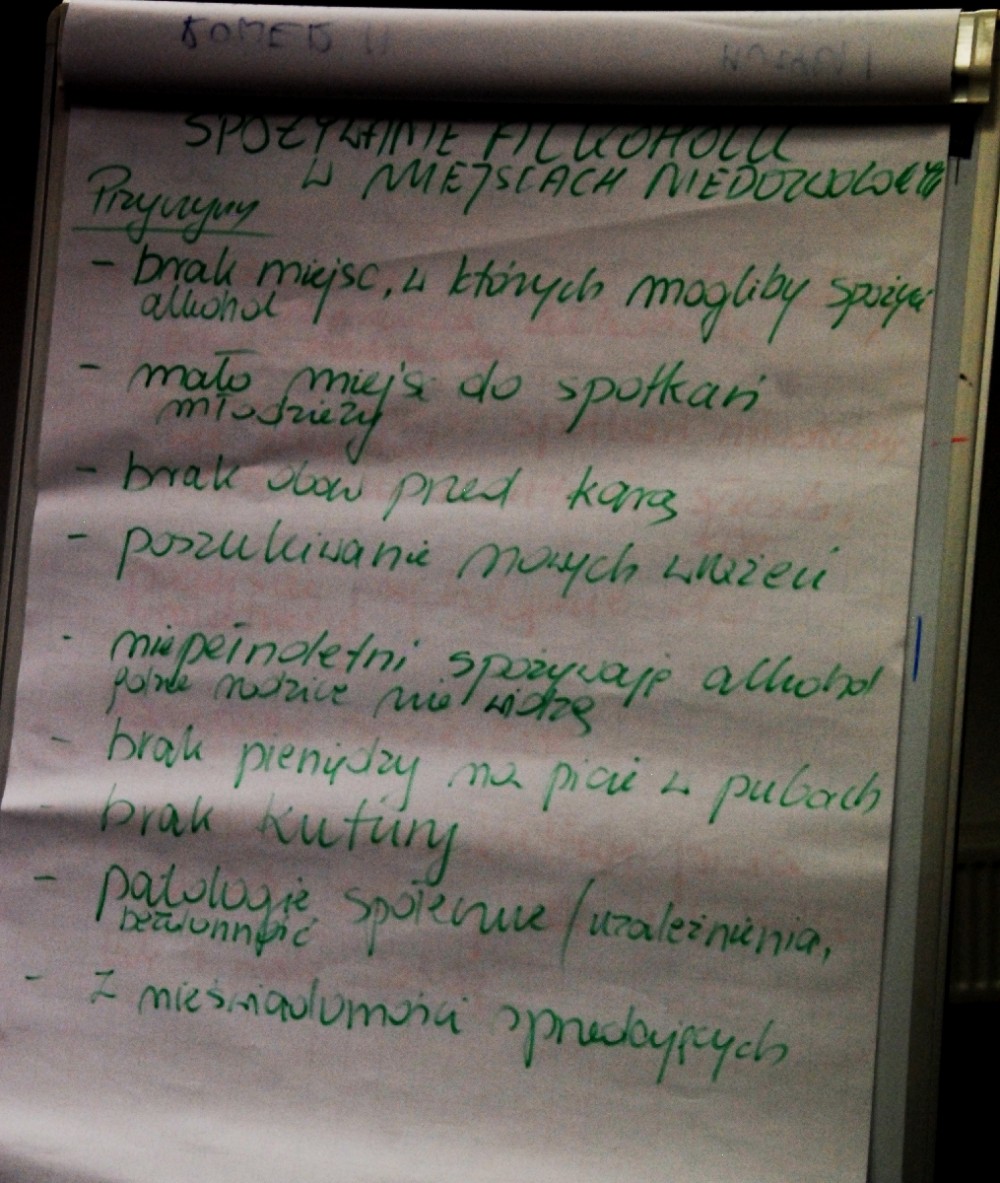 SPOŻYWANIE ALKOHOLU
W MIEJSCACH NIEDOZWOLONYCH
Przyczyny
- brak miejsc, w których mogliby spożyć
alkohol
- mało miejsc do spotkań
młodzieży
- brak obaw przed karą
- poszukiwanie nowych wrażeń
- niepełnoletni spożywają alkohol
gdzie rodzice nie widzą
- brak pieniędzy na picie w pubach
- brak kultury
- patologie społeczne (uzależnienia,
bezdomność
- z nieświadomości sprzedających